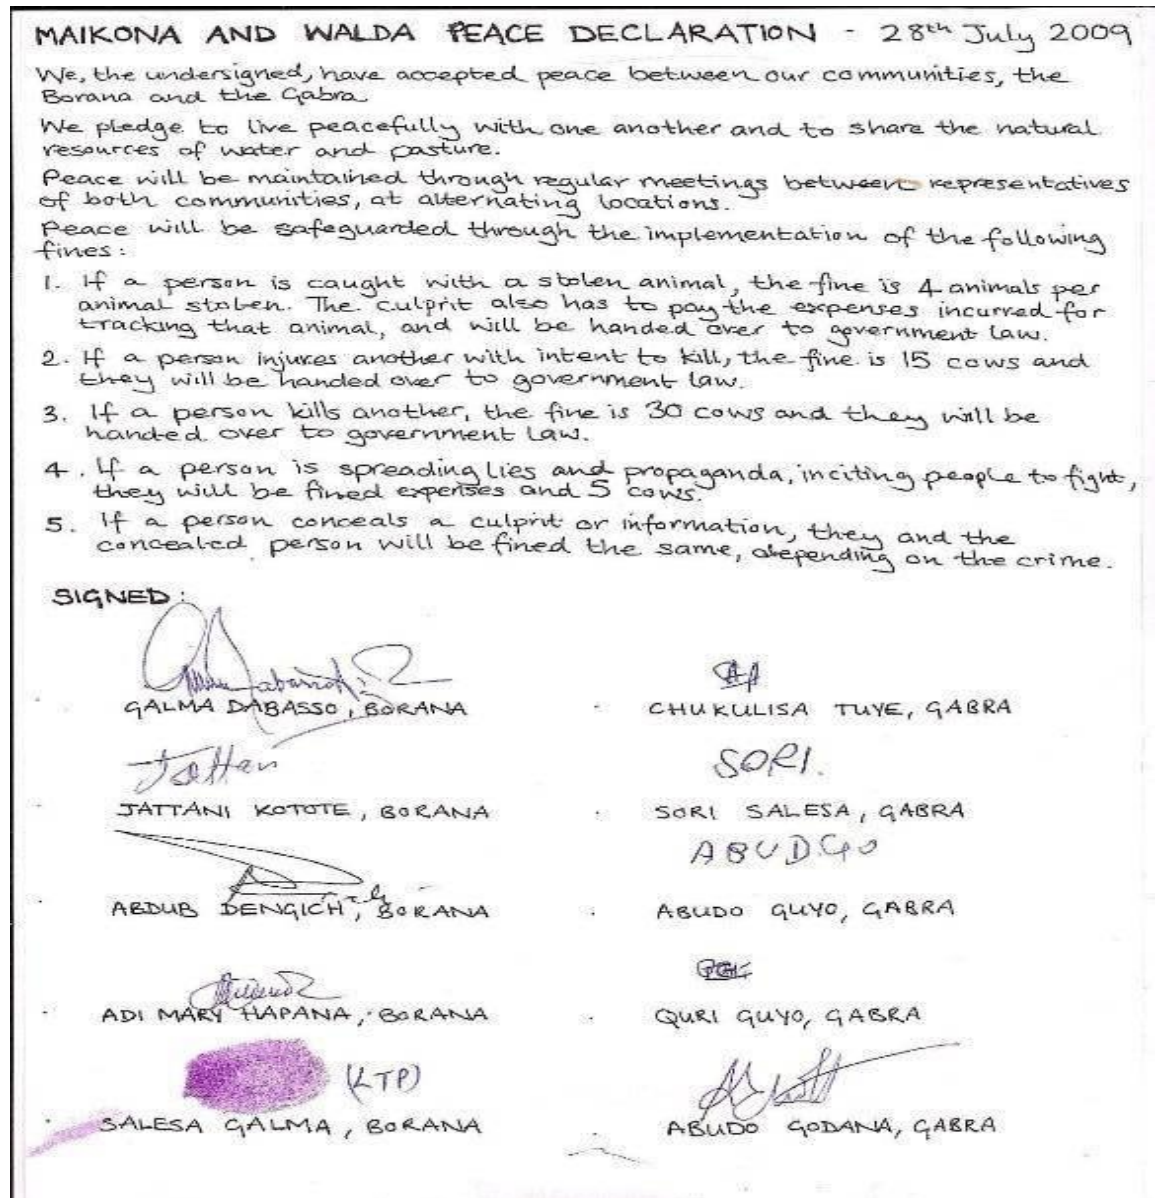 MAIKONA AND WALDA PEACE DECLARATION - 28th July 2009
We, the undersigned, have accepted peace between our communities, the
Borana and the Gabra.
We pledge to live peacefully with one another and to share the natural
resources of water and pasture.
Peace will be maintained through regular meetings between representatives
of both communities, at alternating locations.
Peace will be safeguarded through the implementation of the following
fines:
1. If a person is caught with a stolen animal, the fine is 4 animals per
animal stolen. The culprit also has to pay the expenses incurred for
tracking that animal, and will be handed over to government law.
2. If a person injures another with intent to kill, the fine is 15 cows and
they will be handed over to government law.
3. If a person kills another, the fine is 30 cows and they will be
handed over to government law.
4. If a person is spreading lies and propaganda, inciting people to fight,
they will be fined expenses and 5 cows.
5. If a person conceals a culprit or information, they and the
concealed person will be fined the same, depending on the crime.
SIGNED:
GALMA DABASSO, BORANA
CHUKULISA TUYE, GABRA
SORI.
JATTANI KOTOTE, BORANA
SORI SALESA, GABRA
ABUDGO
ABDUB DENGICH, BORANA
ABUDO GUYO, GABRA
ADI MARY HAPANA, BORANA
QURI GUYO, GABRA
(LTP)
SALESA GALMA, BORANA
ABUDO GODANA, GABRA